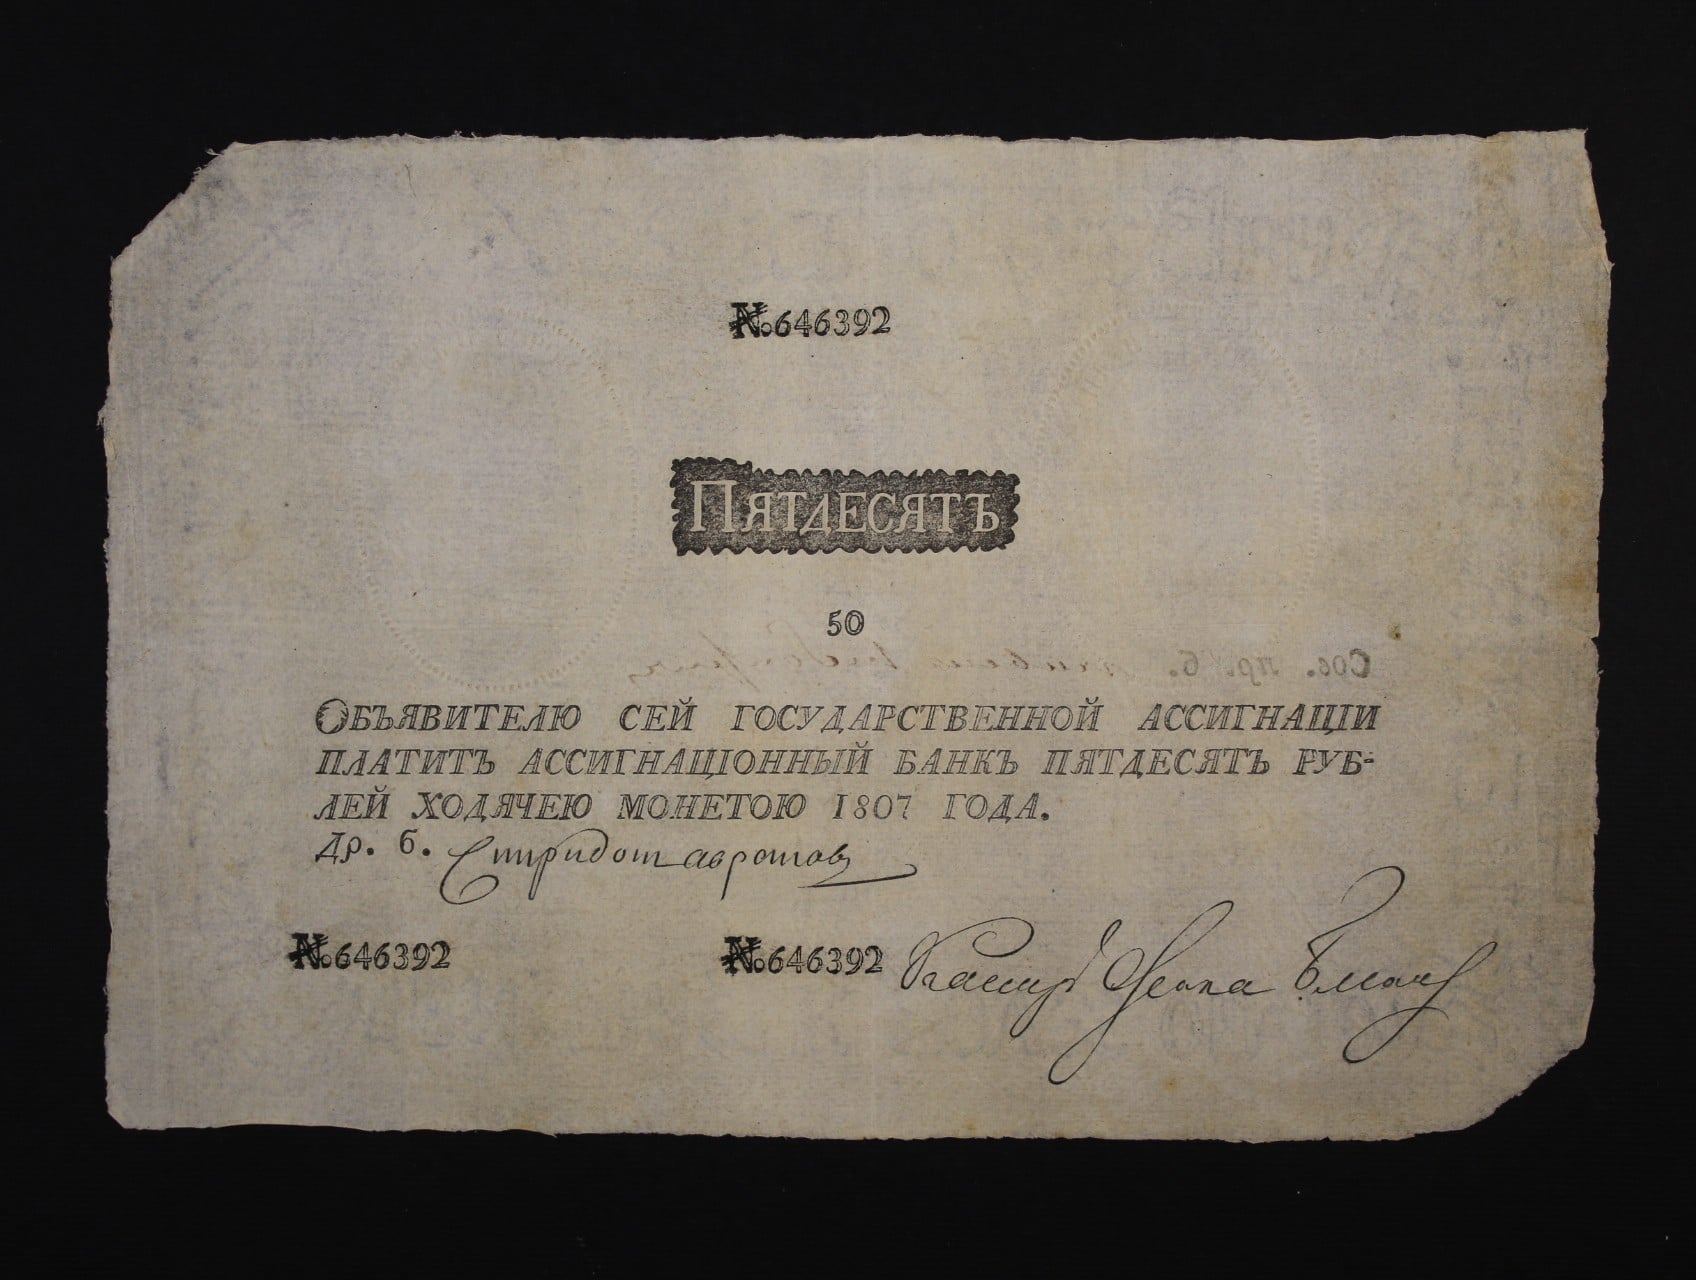 №646392
ПЯТДЕСЯТЪ
50
Сос. пр. б.
ОБЪЯВИТЕЛЮ СЕЙ ГОСУДАРСТВЕННОЙ АССИГНАЦІИ
ПЛАТИТЪ АССИГНАЦІОННЫЙ БАНКЪ ПЯТДЕСЯТЪ РУБ-
ЛЕЙ ХОДЯЧЕЮ МОНЕТОЮ 1807 ГОДА.
Др. б.
№646392 №646392 Касиръ